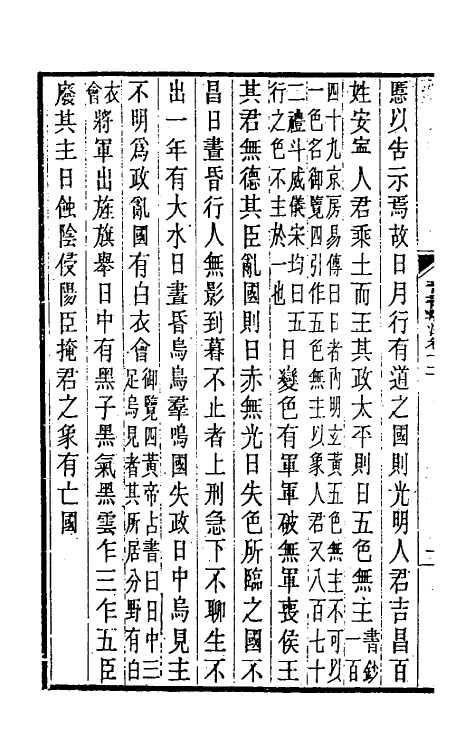 慝以告示焉故日月行有道之國則光明人君吉昌百
姓安寧人君乘土而王其政太平則日五色無主書鈔一百
四十九京房易傳曰日者內明玄黃五色無主不可以
一色名御覽四引作五色無主以象人君又八百七十
二禮斗威儀宋均曰五行之色不主於一也日變色有軍軍破無軍喪侯王
其君無德其臣亂國則日赤無光日失色所臨之國不
昌日晝昏行人無影到暮不止者上刑急下不聊生不
出一年有大水日晝昏烏鳥羣鳴國失政日中烏見主
不明爲政亂國有白衣會御覽四黃帝占書曰日中三足烏見者其所居分野有白
衣會將軍出旌旗舉日中有黑子黑氣黑雲乍三乍五臣
廢其主日蝕陰侵陽臣掩君之象有亡國